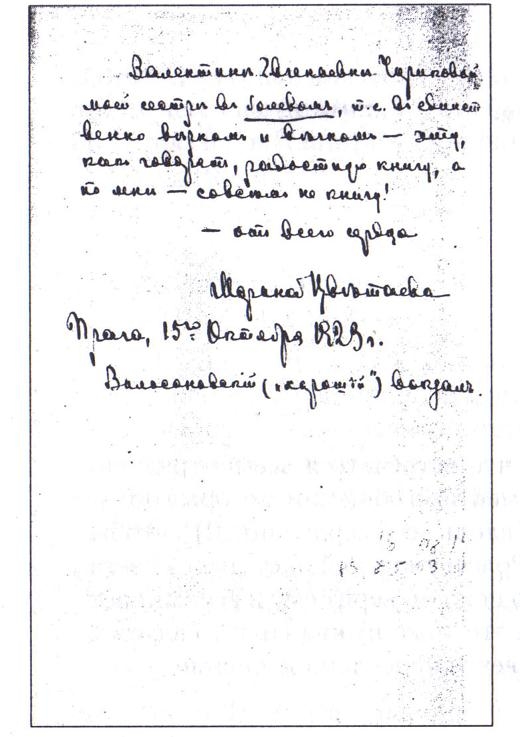 Валентинѣ Евгеньевнѣ Чириковой
моей сестрѣ въ болевомъ, т.е. въ единст
венно вѣрномъ и вѣчномъ — эту,
какъ говорятъ, радостную книгу, а
по мнѣ — совсѣмъ не книгу!
— отъ всего сердца
Марина Цвѣтаева
Прага, 15го Октября 1923 г.
Вильсоновскій („хорошій“) вокзалъ.